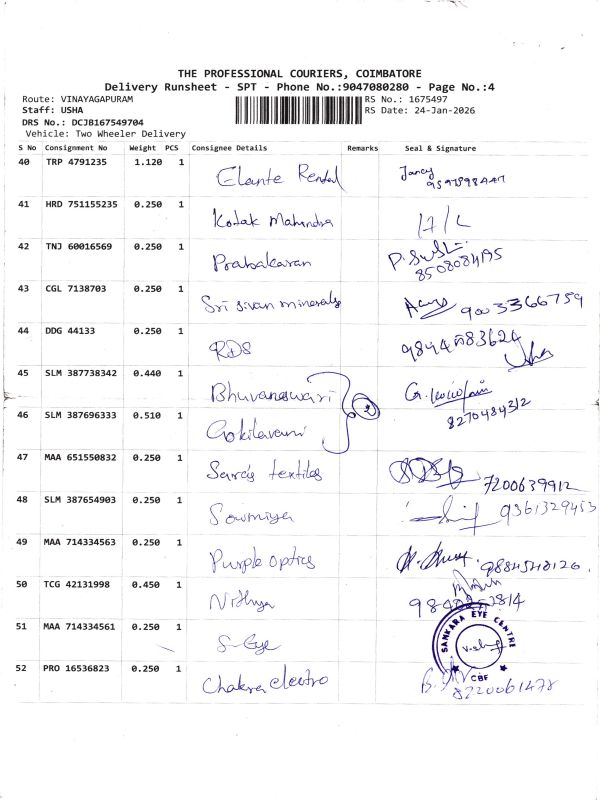 THE PROFESSIONAL COURIERS, COIMBATORE
Delivery Runsheet - SPT - Phone No.:9047080280 - Page No.:4
Route: VINAYAGAPURAM RS No.: 1675497
Staff: USHA RS Date: 24-Jan-2026
DRS No.: DCJB167549704
Vehicle: Two Wheeler Delivery
S No Consignment No Weight PCS Consignee Details Remarks Seal & Signature
40 TRP 4791235 1.120 1 Elante Rental Jancy
41 HRD 751155235 0.250 1 Kotak Mahindra
42 TNJ 60016569 0.250 1 Prabakaran
8508084195
43 CGL 7138703 0.250 1 Sri sivan minerals 9003366759
44 DDG 44133 0.250 1 RDS 9844883624
45 SLM 387738342 0.440 1 Bhuvaneswari
8270484312
46 SLM 387696333 0.510 1 Gokilavani
47 MAA 651550832 0.250 1 Saras textiles 7200639912
48 SLM 387654903 0.250 1 Sowmiya 9361329453
49 MAA 714334563 0.250 1 Purple optics 9884548126
50 TCG 42131998 0.450 1 Nithya
51 MAA 714334561 0.250 1 S-Eye SANKARA EYE CENTRE CBF
52 PRO 16536823 0.250 1 Chakra electro
8220061478